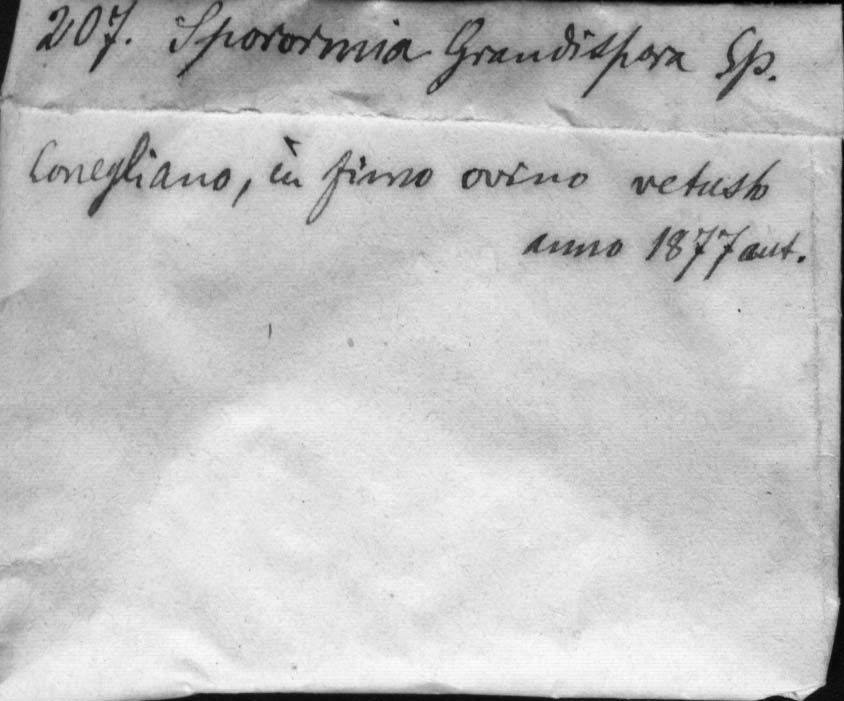 207. Sporormia Grandispora Sp.
Conegliano, in fimo ovino vetusto
anno 1877 aut.